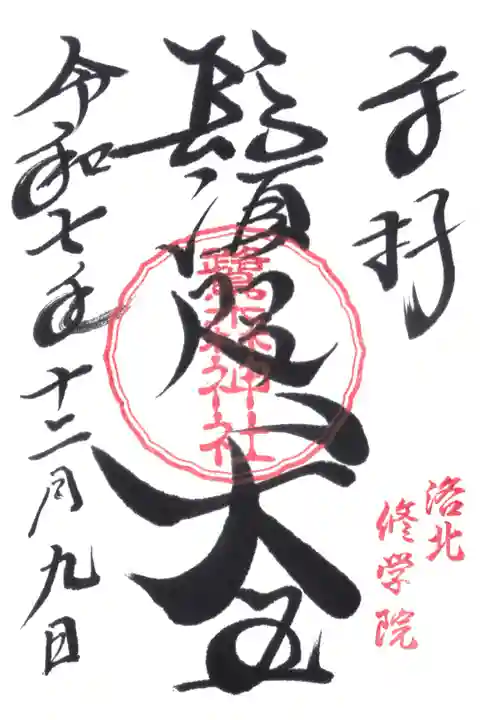 奉拝
洛北
修学院
髢須咫天皇
鷺森神社
令和七年十二月九日